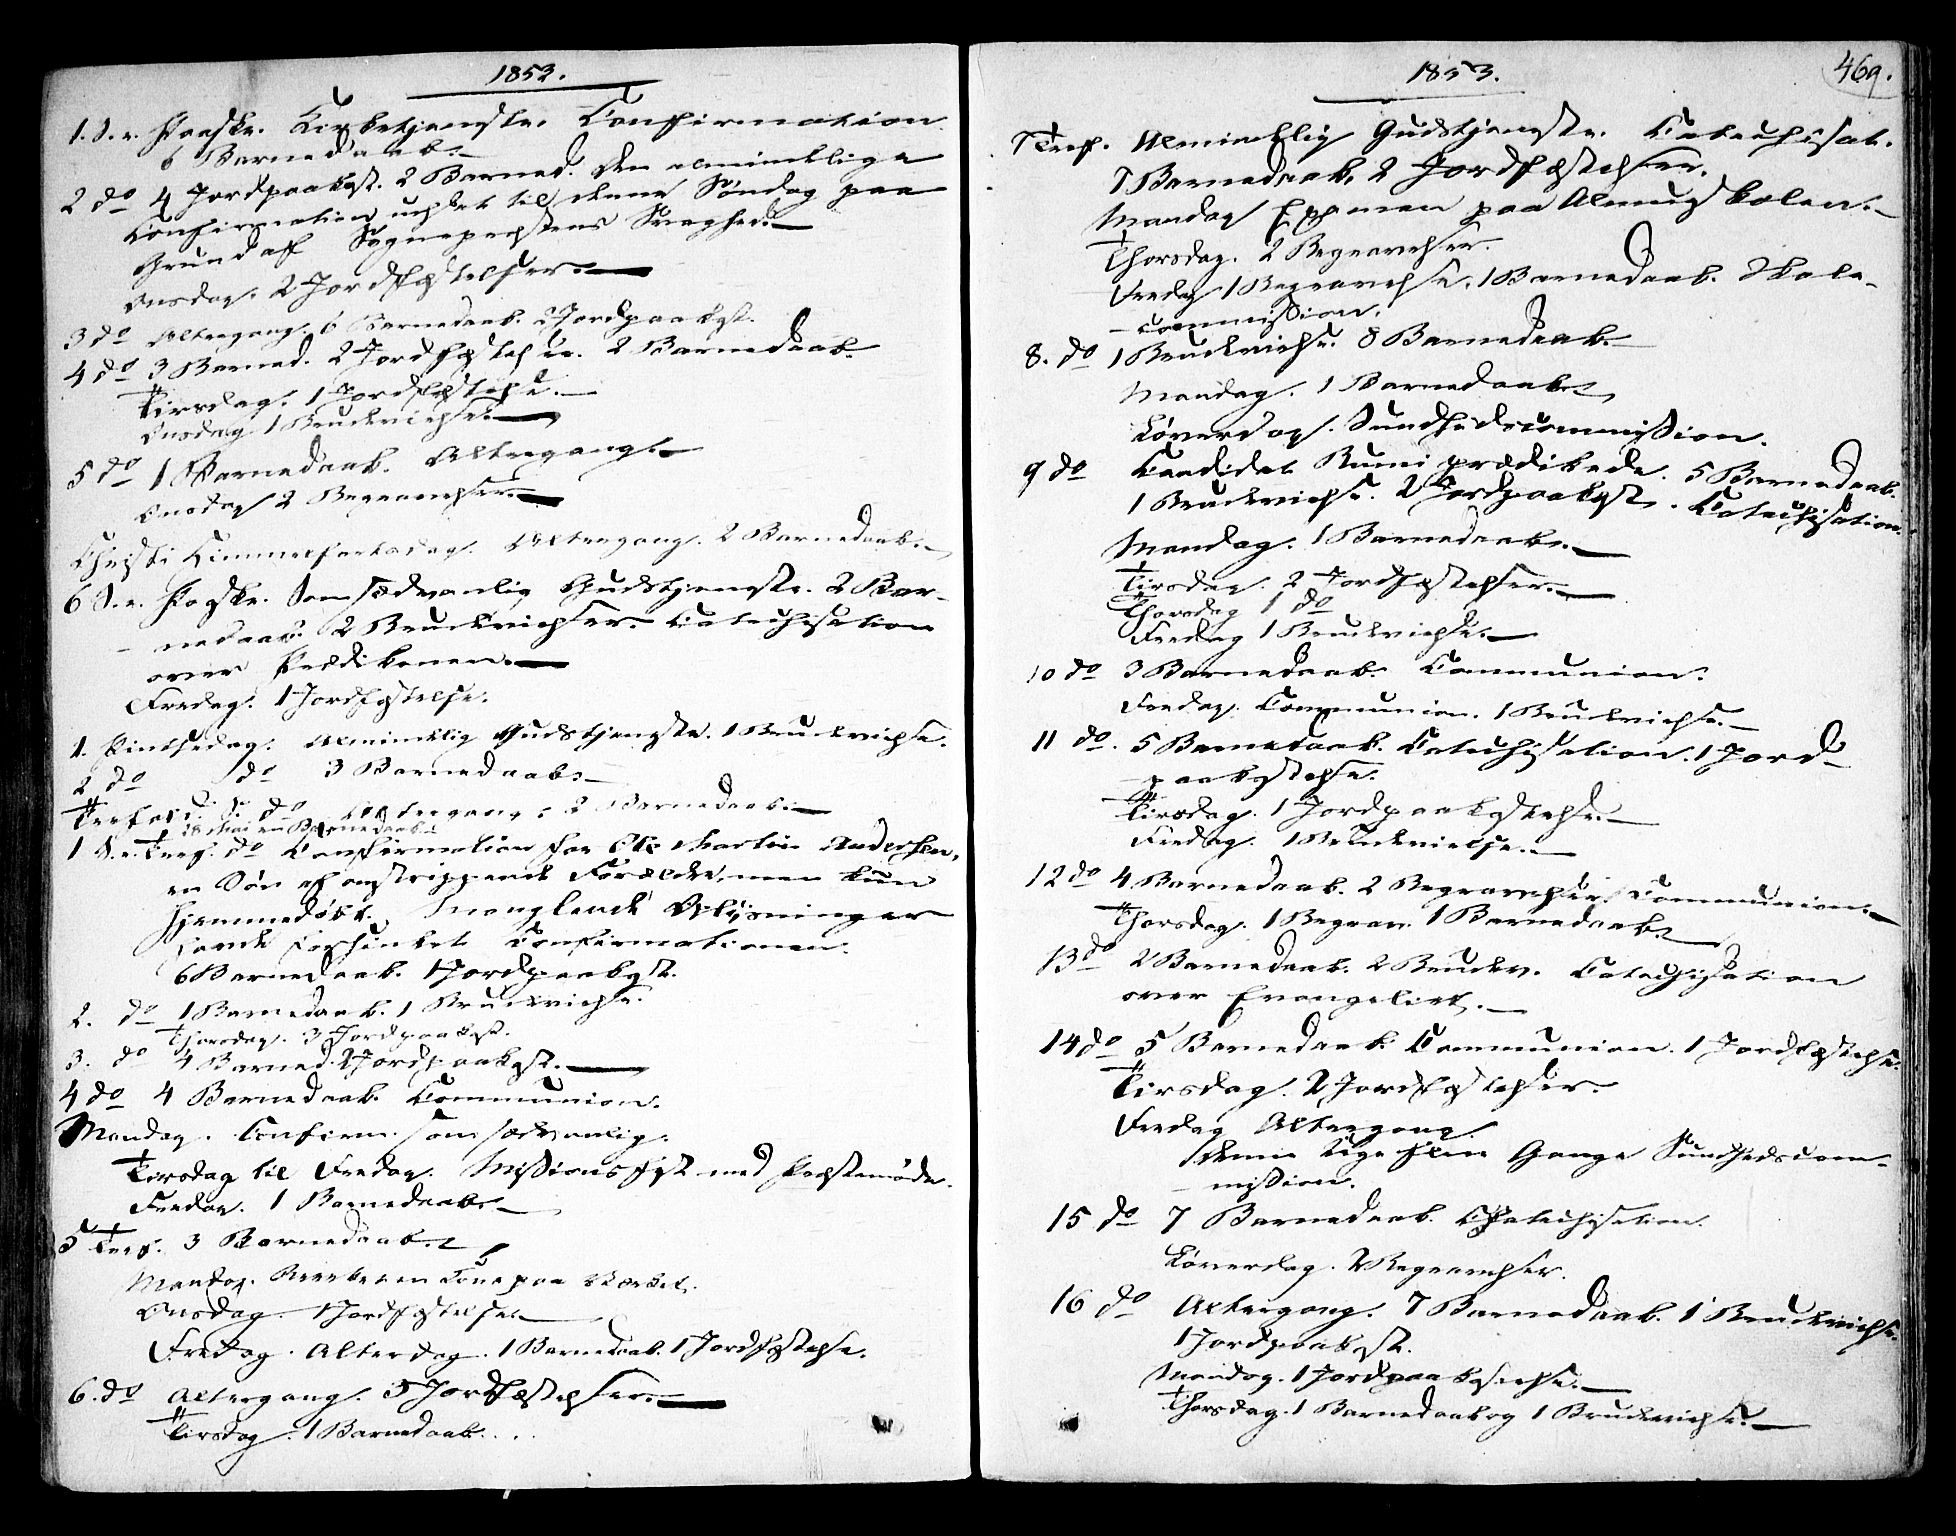 1853.
1. S. e. Paaske. Kirketjeneste. Confirmation
6 Barnedaab.
2 do 4 Jordpaakast. 2 Barned. Den almindelige
Confirmation udsat til denne Søndag paa
Grund af Sognepræstens Svaghed.
Onsdag. 2 Jordfæstelser.
3 do Altergang. 6 Barnedaab. 2 Jordpaakast.
4 do 3 Barned. 2 Jordfæstelser. 2 Barnedaab.
Tirsdag. 1 Jordfæstelse.
Onsdag 1 Brudevielse.
5 do 1 Barnedaab. Altergang.
Onsdag 2 Begravelser.
Christi Himmelfartsdag. Altergang. 2 Barnedaab.
6 S. e. Paaske. Som sædvanlig Gudstjeneste. 2 Bar-
nedaab. 2 Brudevielser. Catechisation
over Prædikenen.
Fredag. 1 Jordfæstelse.
1. Pintsedag. Almindelig Gudstjeneste. 1 Brudevielse.
2 do do 3 Barnedaab.
do Altergang. 2 Barnedaab.
en Barnedaab.
1 S. e. Tref. do Confirmation for Ole Martin Andersen,
en Søn af omstrippende Forældre, men kun
hjemmedøbt. Manglende Oplysninger
havde forsinket Confirmationen.
6 Barnedaab. 1 Jordpaakast.
2. do 1 Barnedaab. 1 Brudevielse.
Thorsdag. 3 Jordpaakast.
3. do 4 Barned. 2 Jordpaakast.
4 do 4 Barnedaab. Communion.
Mandag. Confirm. som sædvanlig.
Tirsdag til Fredag. Missionsfest med Præstemøde.
Fredag. 1 Barnedaab.
5 Tref. 3 Barnedaab.
Mandag. en Kone paa Værket.
Onsdag. 1 Jordfæstelse.
Fredag. Alterdag. 1 Barnedaab. 1 Jordfæstelse.
6. do Altergang. 3 Jordfæstelser.
Tirsdag. 1 Barnedaab.
1853.
469.
7 Tref. Almindelig Gudstjeneste. Catechisat.
7 Barnedaab. 2 Jordfæstelser.
Mandag Examen paa Almueskolen.
Thorsdag. 2 Begravelser.
Fredag 1 Begravelse. 1 Barnedaab. Skole-
commission.
8. do 1 Brudevielse. 8 Barnedaab.
Mandag. 1 Barnedaab.
Løverdag. Sundhedscommission.
9 do Candidat prædikede. 5 Barnedaab.
1 Brudevielse. 2 Jordpaakast. Catechisation.
Mandag. 1 Barnedaab.
Tirsdag. 2 Jordfæstelser.
Thorsdag 1 do
Fredag 1 Brudevielse.
10 do 3 Barnedaab. Communion.
Fredag. Communion. 1 Brudevielse.
11 do. 5 Barnedaab. Catechisation. 1 Jord-
paakastelse.
Tirsdag. 1 Jordpaakastelse.
Fredag. 1 Brudevielse.
12 do 4 Barnedaab. 2 Begravelser. Communion.
Thorsdag. 1 Begrav. 1 Barnedaab.
13 do 2 Barnedaab. 2 Brudev. Catechisation
over Evangeliet.
14 do 5 Barnedaab. Communion. 1 Jordfæstelse.
Tirsdag. 2 Jordfæstelser.
Fredag Altergang.
denne Uge flere Gange Sundhedscom-
mission.
15 do 7 Barnedaab. Catechisation.
Løverdag. 2 Begravelser.
16 do Altergang. 7 Barnedaab. 1 Brudevielse.
1 Jordpaakast.
Mandag. 1 Jordpaakastelse.
Thorsdag. 1 Barnedaab og 1 Brudevielse.